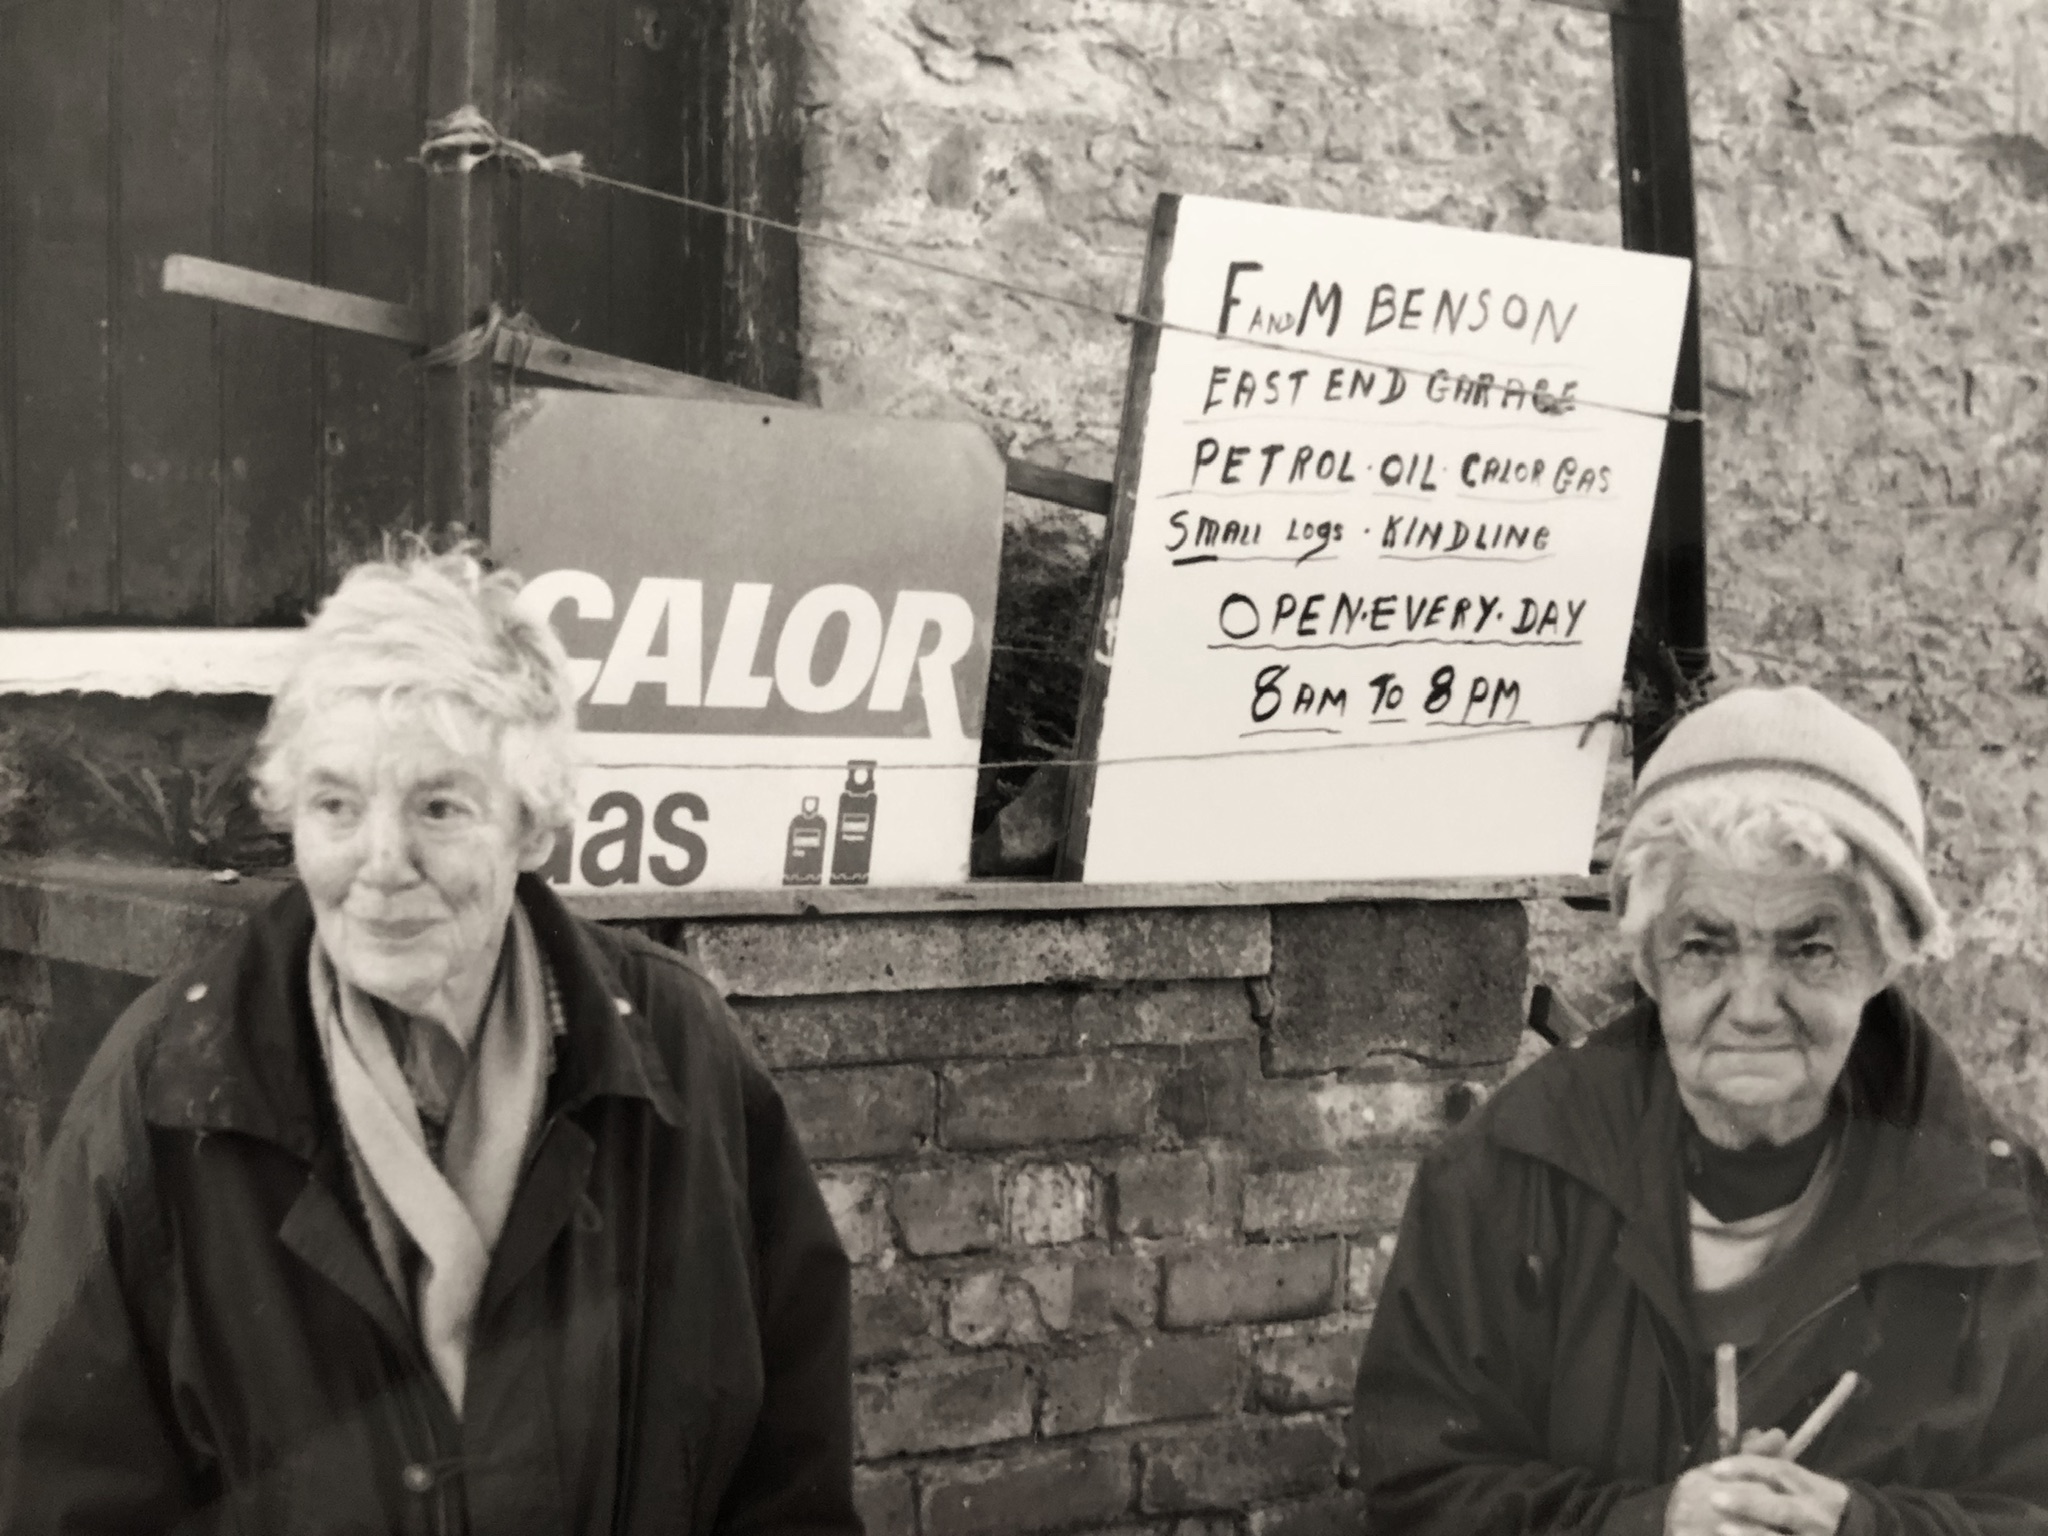 F AND M BENSON
EAST END GARAGE
PETROL · OIL · CALOR GAS
SMALL LOGS · KINDLING
OPEN · EVERY · DAY
8 AM TO 8 PM
CALOR
as